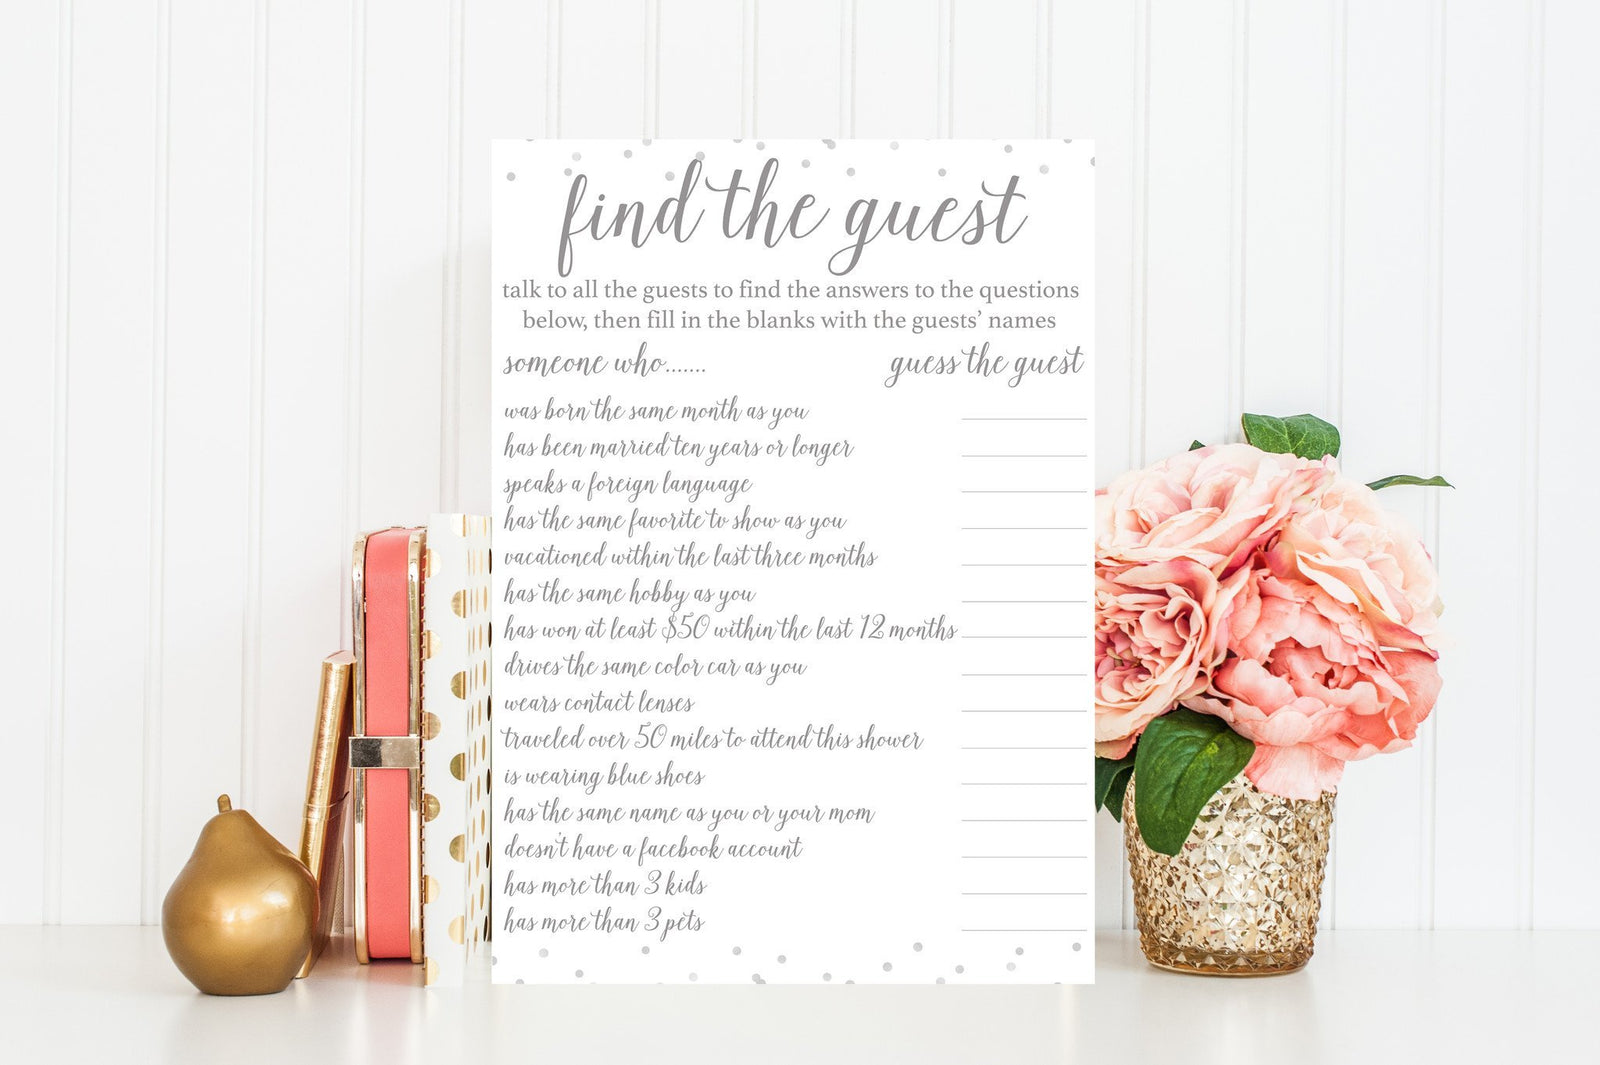 find the guest
talk to all the guests to find the answers to the questions
below, then fill in the blanks with the guests' names
someone who.......
guess the guest
was born the same month as you
has been married ten years or longer
speaks a foreign language
has the same favorite tv show as you
vacationed within the last three months
has the same hobby as you
has won at least $50 within the last 12 months
drives the same color car as you
wears contact lenses
traveled over 50 miles to attend this shower
is wearing blue shoes
has the same name as you or your mom
doesn't have a facebook account
has more than 3 kids
has more than 3 pets